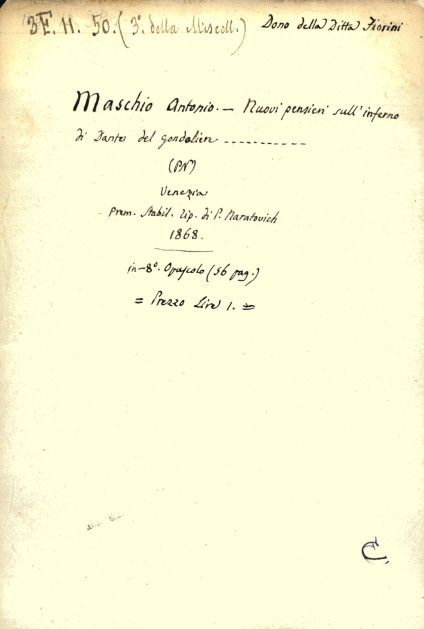 3F. H. 50. (3º. della Miscell.) Dono della Ditta Fiorini
Maschio Antonio. — Nuovi pensieri sull'inferno
di Dante del gondoliere ----------
(PN)
Venezia
Prem. Stabil. Tip. di P. Naratovich
1868.
in-8º. Opuscolo (56 pag.)
= Prezzo Lire 1. =
C.